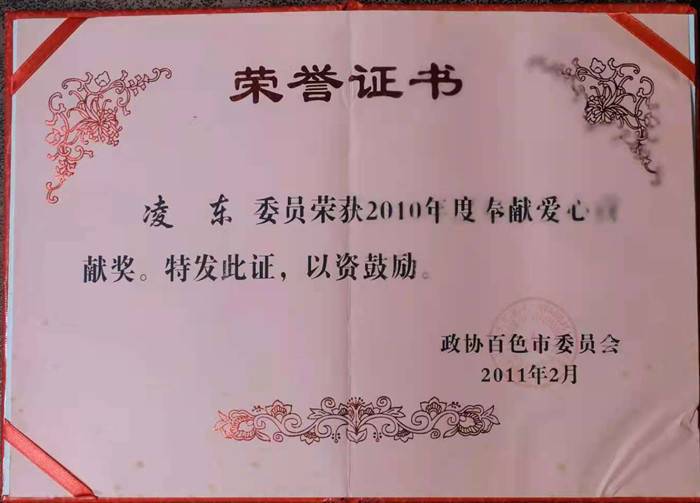 荣誉证书
凌 东 委员荣获2010年度奉献爱心
献奖。特发此证，以资鼓励。
政协百色市委员会
2011年2月